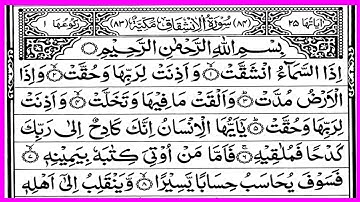 اٰیَاتُهَا ٢٥ (٨٤) سُوْرَةُ الْاِنْشِقَاقِ مَكِّيَّةٌ (٨٣) رُكُوْعُهَا ١
بِسْمِ اللّٰهِ الرَّحْمٰنِ الرَّحِيْمِ
اِذَا السَّمَآءُ انْشَقَّتْ ۙ﴿١﴾ وَاَذِنَتْ لِرَبِّهَا وَحُقَّتْ ۙ﴿٢﴾ وَاِذَا
الْاَرْضُ مُدَّتْ ۙ﴿٣﴾ وَاَلْقَتْ مَا فِيْهَا وَتَخَلَّتْ ۙ﴿٤﴾ وَاَذِنَتْ
لِرَبِّهَا وَحُقَّتْ ؕ﴿٥﴾ يٰۤاَيُّهَا الْاِنْسَانُ اِنَّكَ كَادِحٌ اِلٰى رَبِّكَ
كَدْحًا فَمُلٰقِيْهِ ۚ﴿٦﴾ فَاَمَّا مَنْ اُوْتِيَ كِتٰبَهٗ بِيَمِيْنِهٖ ۙ﴿٧﴾
فَسَوْفَ يُحَاسَبُ حِسَابًا يَّسِيْرًا ۙ﴿٨﴾ وَّيَنْقَلِبُ اِلٰۤى اَهْلِهٖ